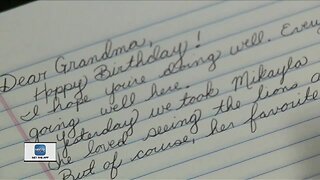 Dear Grandma,
Happy Birthday!
I hope you're doing well. Every
going well here.
Yesterday we took Mikayla
he loved seeing the lions a
But of course, her favorite
GET THE APP